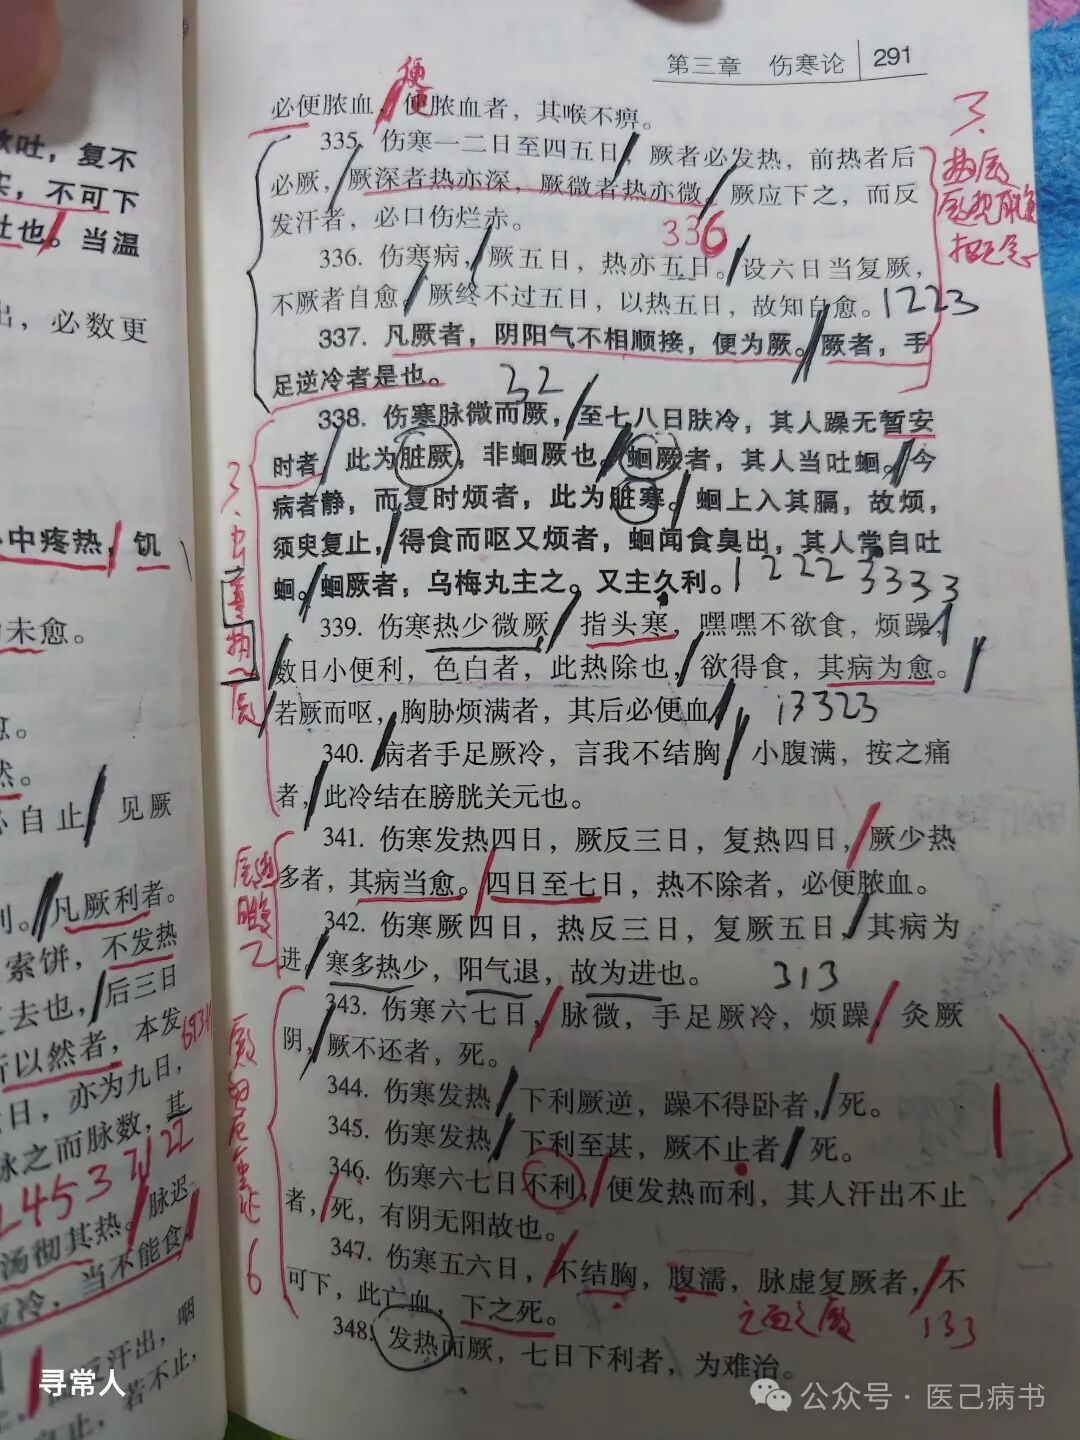 第三章 伤寒论 291
必便脓血，便脓血者，其喉不痹。
335. 伤寒一二日至四五日，厥者必发热，前热者后
必厥，厥深者热亦深，厥微者热亦微。厥应下之，而反
发汗者，必口伤烂赤。
336
336. 伤寒病，厥五日，热亦五日。设六日当复厥，
不厥者自愈。厥终不过五日，以热五日，故知自愈。1223
337. 凡厥者，阴阳气不相顺接，便为厥。厥者，手
足逆冷者是也。 32
338. 伤寒脉微而厥，至七八日肤冷，其人躁无暂安
时者，此为脏厥，非蛔厥也。蛔厥者，其人当吐蛔。今
病者静，而复时烦者，此为脏寒。蛔上入其膈，故烦，
须臾复止，得食而呕又烦者，蛔闻食臭出，其人常自吐
蛔。蛔厥者，乌梅丸主之。又主久利。1 2 2 2 3 3 3 3
339. 伤寒热少微厥，指头寒，嘿嘿不欲食，烦躁，
数日小便利，色白者，此热除也，欲得食，其病为愈。
若厥而呕，胸胁烦满者，其后必便血。 13323
340. 病者手足厥冷，言我不结胸，小腹满，按之痛
者，此冷结在膀胱关元也。
341. 伤寒发热四日，厥反三日，复热四日，厥少热
多者，其病当愈。四日至七日，热不除者，必便脓血。
342. 伤寒厥四日，热反三日，复厥五日，其病为
进。寒多热少，阳气退，故为进也。 313
343. 伤寒六七日，脉微，手足厥冷，烦躁，灸厥
阴，厥不还者，死。
344. 伤寒发热，下利厥逆，躁不得卧者，死。
345. 伤寒发热，下利至甚，厥不止者，死。
346. 伤寒六七日不利，便发热而利，其人汗出不止
者，死，有阴无阳故也。
347. 伤寒五六日，不结胸，腹濡，脉虚复厥者，不
可下，此亡血，下之死。 133
348. 发热而厥，七日下利者，为难治。
吹吐，复不
实，不可下
吐也。当温
出，必数更
心中疼热，饥
未愈。
愈。
然。
必自止，见厥
利。凡厥利者。
索饼，不发热
去也，后三日
所以然者，本发
日，亦为九日，
脉之而脉数，其
脉迟
汤彻其热。
当不能食，
应冷，
汗出，咽
止，若不止，
寻常人
公众号·医己病书